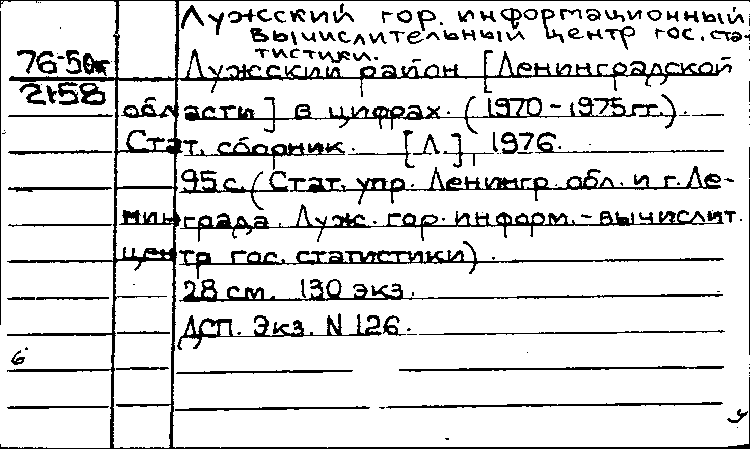 Лужский гор. информационный
вычислительный центр гос. ста-
тистики.
76-50к
2158
Лужский район [Ленинградской
области] в цифрах. (1970-1975гг.).
Стат. сборник. [Л.], 1976.
95 с. (Стат. упр. Ленингр. обл. и г. Ле-
нинграда. Луж. гор. информ.-вычислит.
центр гос. статистики).
28 см. 130 экз.
ДСП. Экз. N 126.
6
у